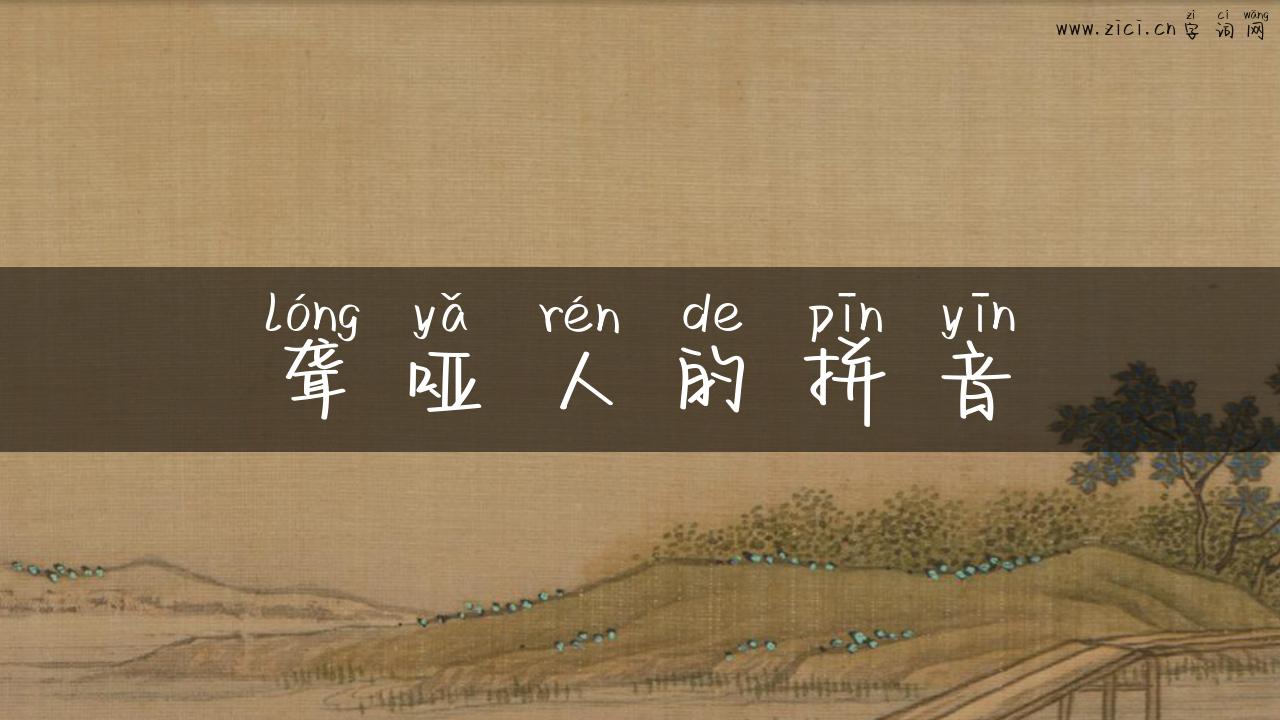 zì cí wǎng
www.zici.cn字词网
lóng yǎ rén de pīn yīn
聋哑人的拼音